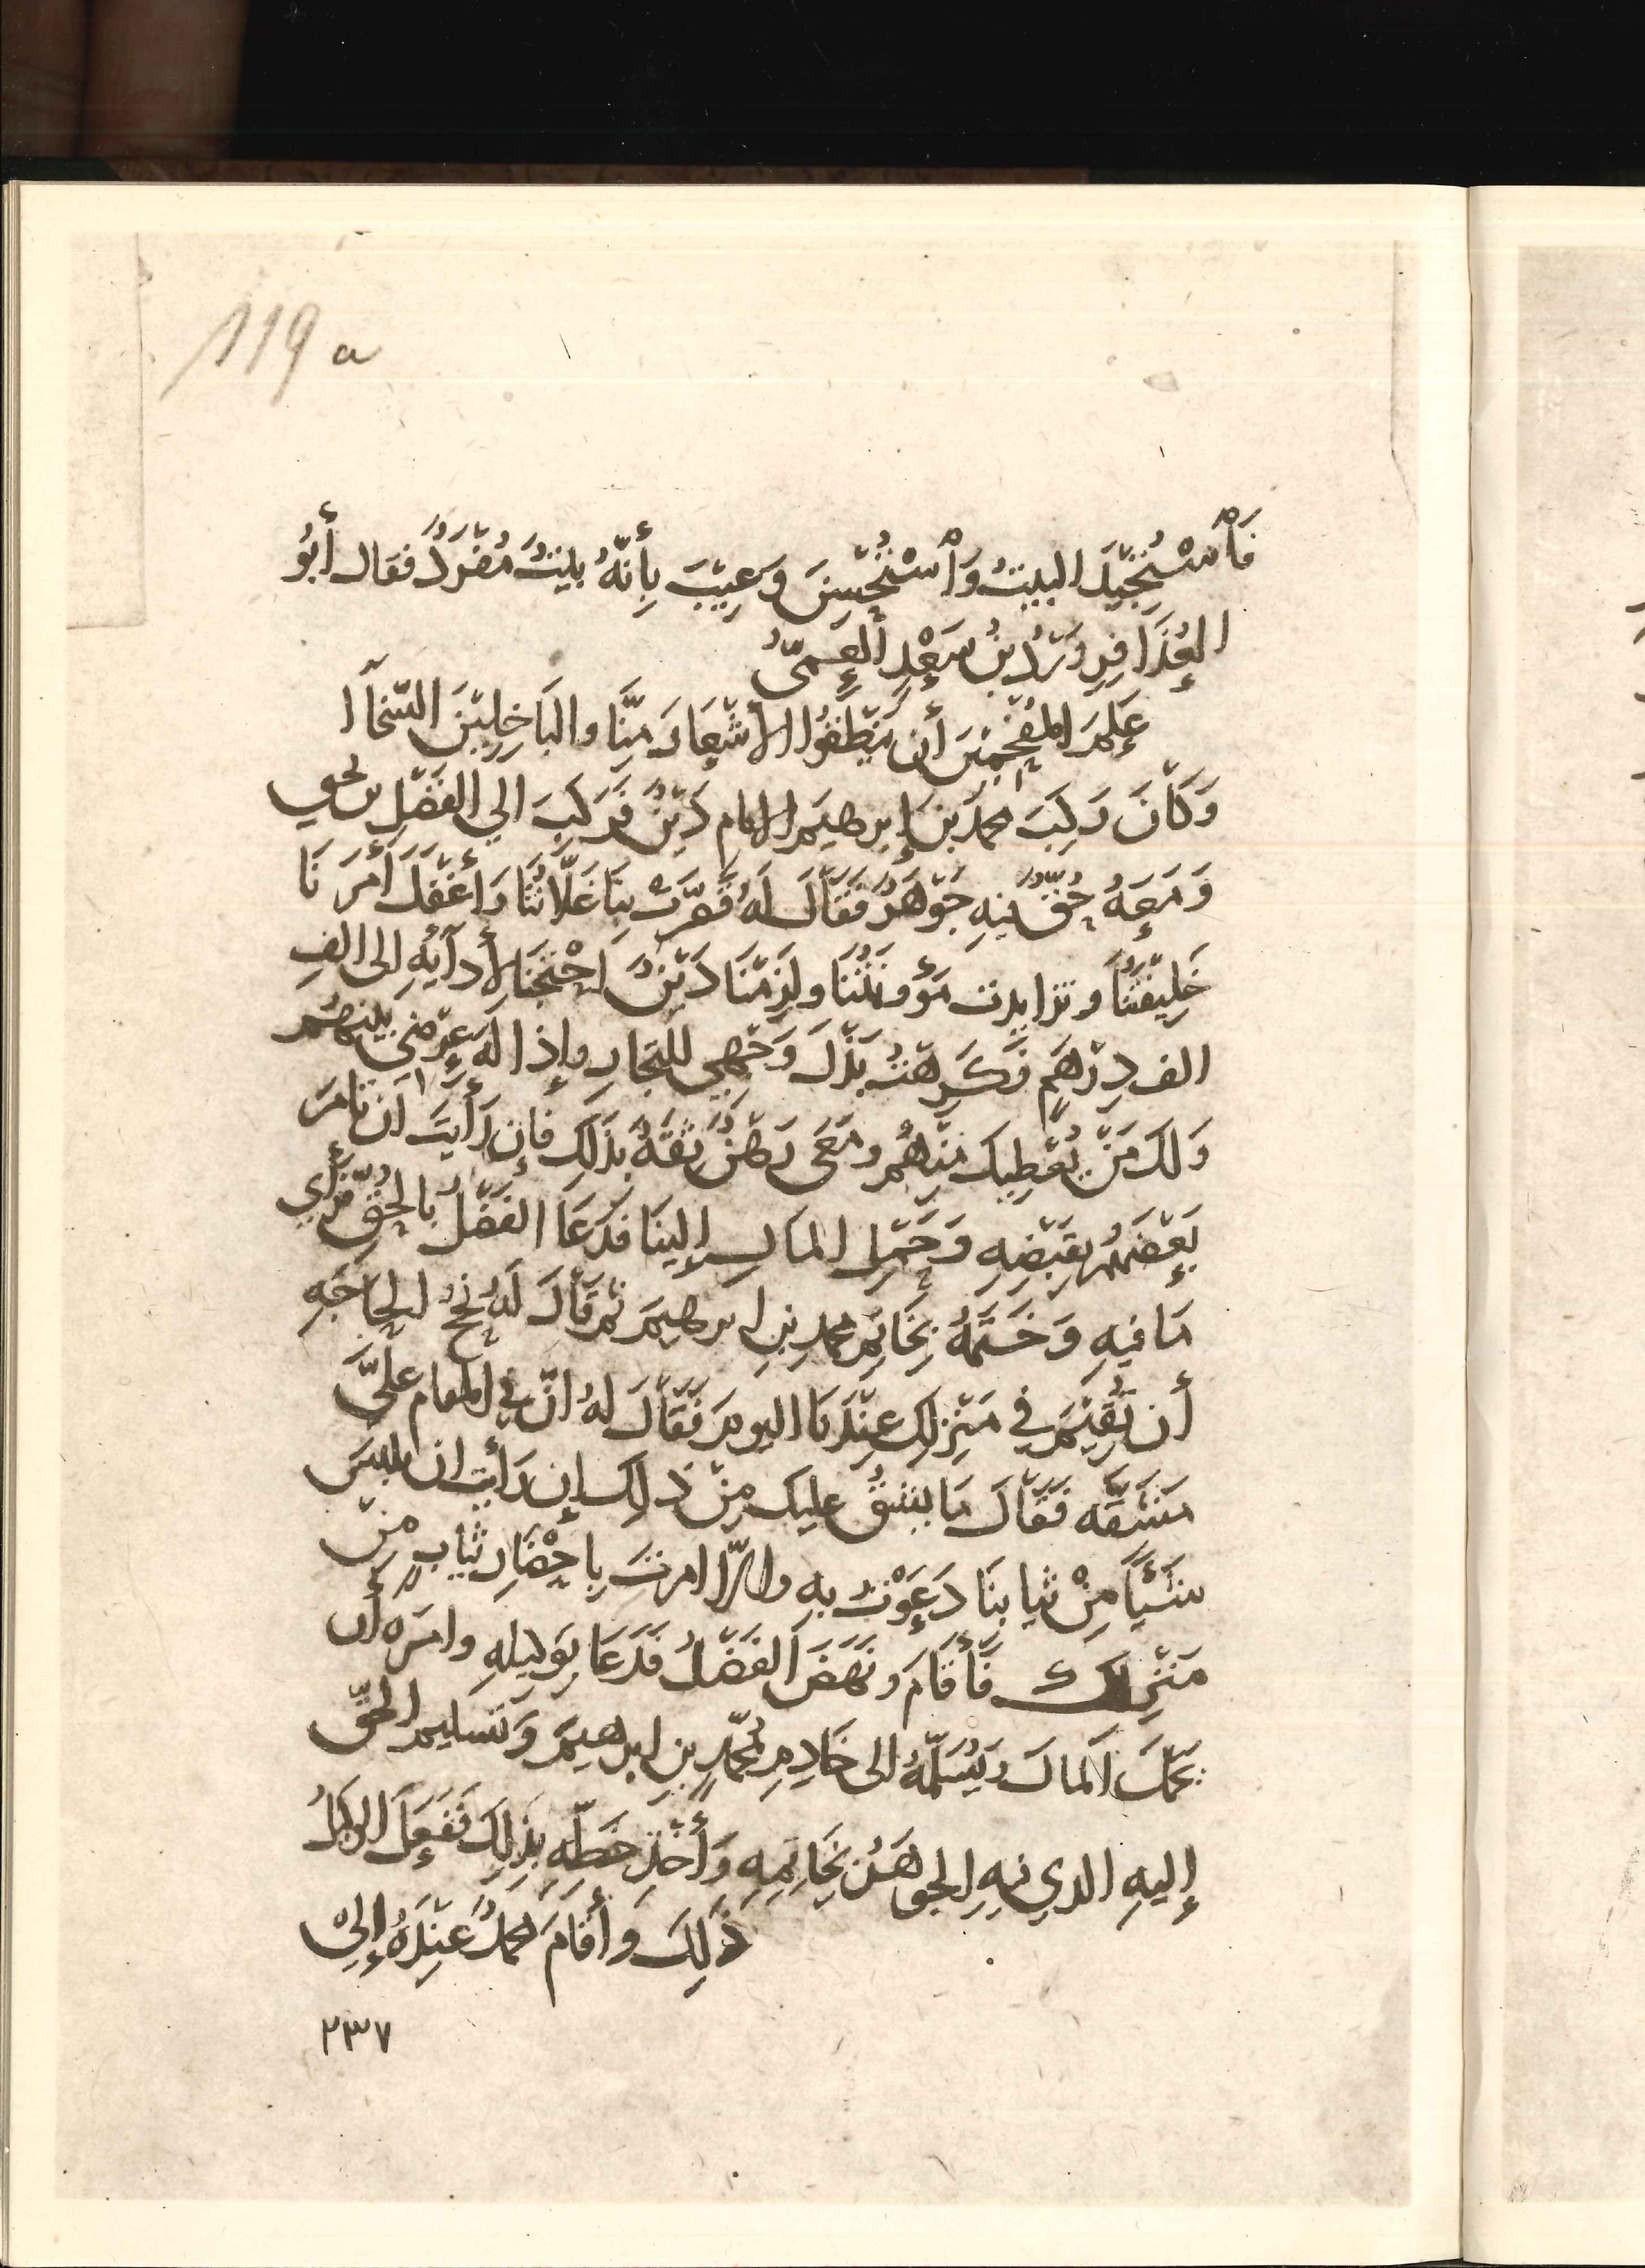 119 a
فَٱسْتُجِيْدَ البيتُ وَٱسْتُحْسِنَ وَعِيْبَ بِأَنَّهُ بَيْتٌ مُفْرَدٌ فقال أبُو
العُذَافِرِ وَرْدُ بنُ سَعْدٍ العَمِّيُّ
عَلَّمَ المُفْحَمِيْنَ أن يَنْطِقُوا الأشْعَارَ مِنَّا والبَاخِلِيْنَ السَّخَآا
وَكَانَ رَكِبَ محمدَ بْنَ إبرهيمَ الامامِ دَيْنٌ فَرَكِبَ الي الفَضْلِ بن يحيي
وَمَعَهُ حُقٌّ فيهِ جَوْهَرٌ فَقَالَ لَهُ قَصَّرَتْ بِنَا غَلَّاتُنَا وَأَغْفَلَ أَمْرَنَا
خَلِيْفَتُنَا وتزايدت مَؤُونَتُنَا ولَزِمَنَا دَيْنٌ احْتَجْنَا لأدآيِهِ الى الفِ
الف دِرْهَمٍ فَكَرِهْتُ بَذْلَ وَجْهِي للتجارِ وإذالَةَ عِرْضِي بينهُم
وَلَكَ مَنْ يُعْطِيكَ مِنْهُم ومَعِي رَهْنٌ ثِقَةٌ بذَلِكَ فإن رَأَيْتَ أن تامرَ
بَعْضَهُم بِقَبْضِهِ وَحَمْلِ المَالِ إلينَا فَدَعَا الفَضْلُ بالحُقِّ فرَأي
مَا فيهِ وَخَتَمَهُ بِخَاتِمِ محمدِ بنِ ابرهيمَ ثم قَالَ لَهُ نُجْحُ الحَاجَهِ
أن تُقِيْمَ في مَنْزِلِكَ عِنْدَنَا اليومَ فَقَالَ لهُ انّ في المقامِ عليَّ
مَشَقَّه فَقَالَ مَا يَشُقُّ عليكَ مِنْ ذَلِكَ إن رَأَيْتَ ان تلبَسَ
شَيْئًا مِنْ ثيابِنَا دَعَوْتُ بهِ والاّ امرتُ بِاحْضَارِ ثيابٍ مِنْ
مَنْزِلِكَ فَأَقَامَ ونَهَضَ الفَضْلُ فَدَعَا بِوَكيلِهِ وامَرَه أن
يحملَ المالَ ويُسَلِّمَهُ الى خَادِمِ مُحَمَّدِ بنِ ابرهيمَ وَتسليم الحُقِّ
إليهِ الذي فيهِ الجوهَرُ بِخَاتِمِهِ وَأَخْذِ خَطِّهِ بِذَلِكَ فَفَعَلَ الوكيلُ
ذَلِكَ وأَقَامَ محمدٌ عِنْدَهُ إلى
٢٣٧